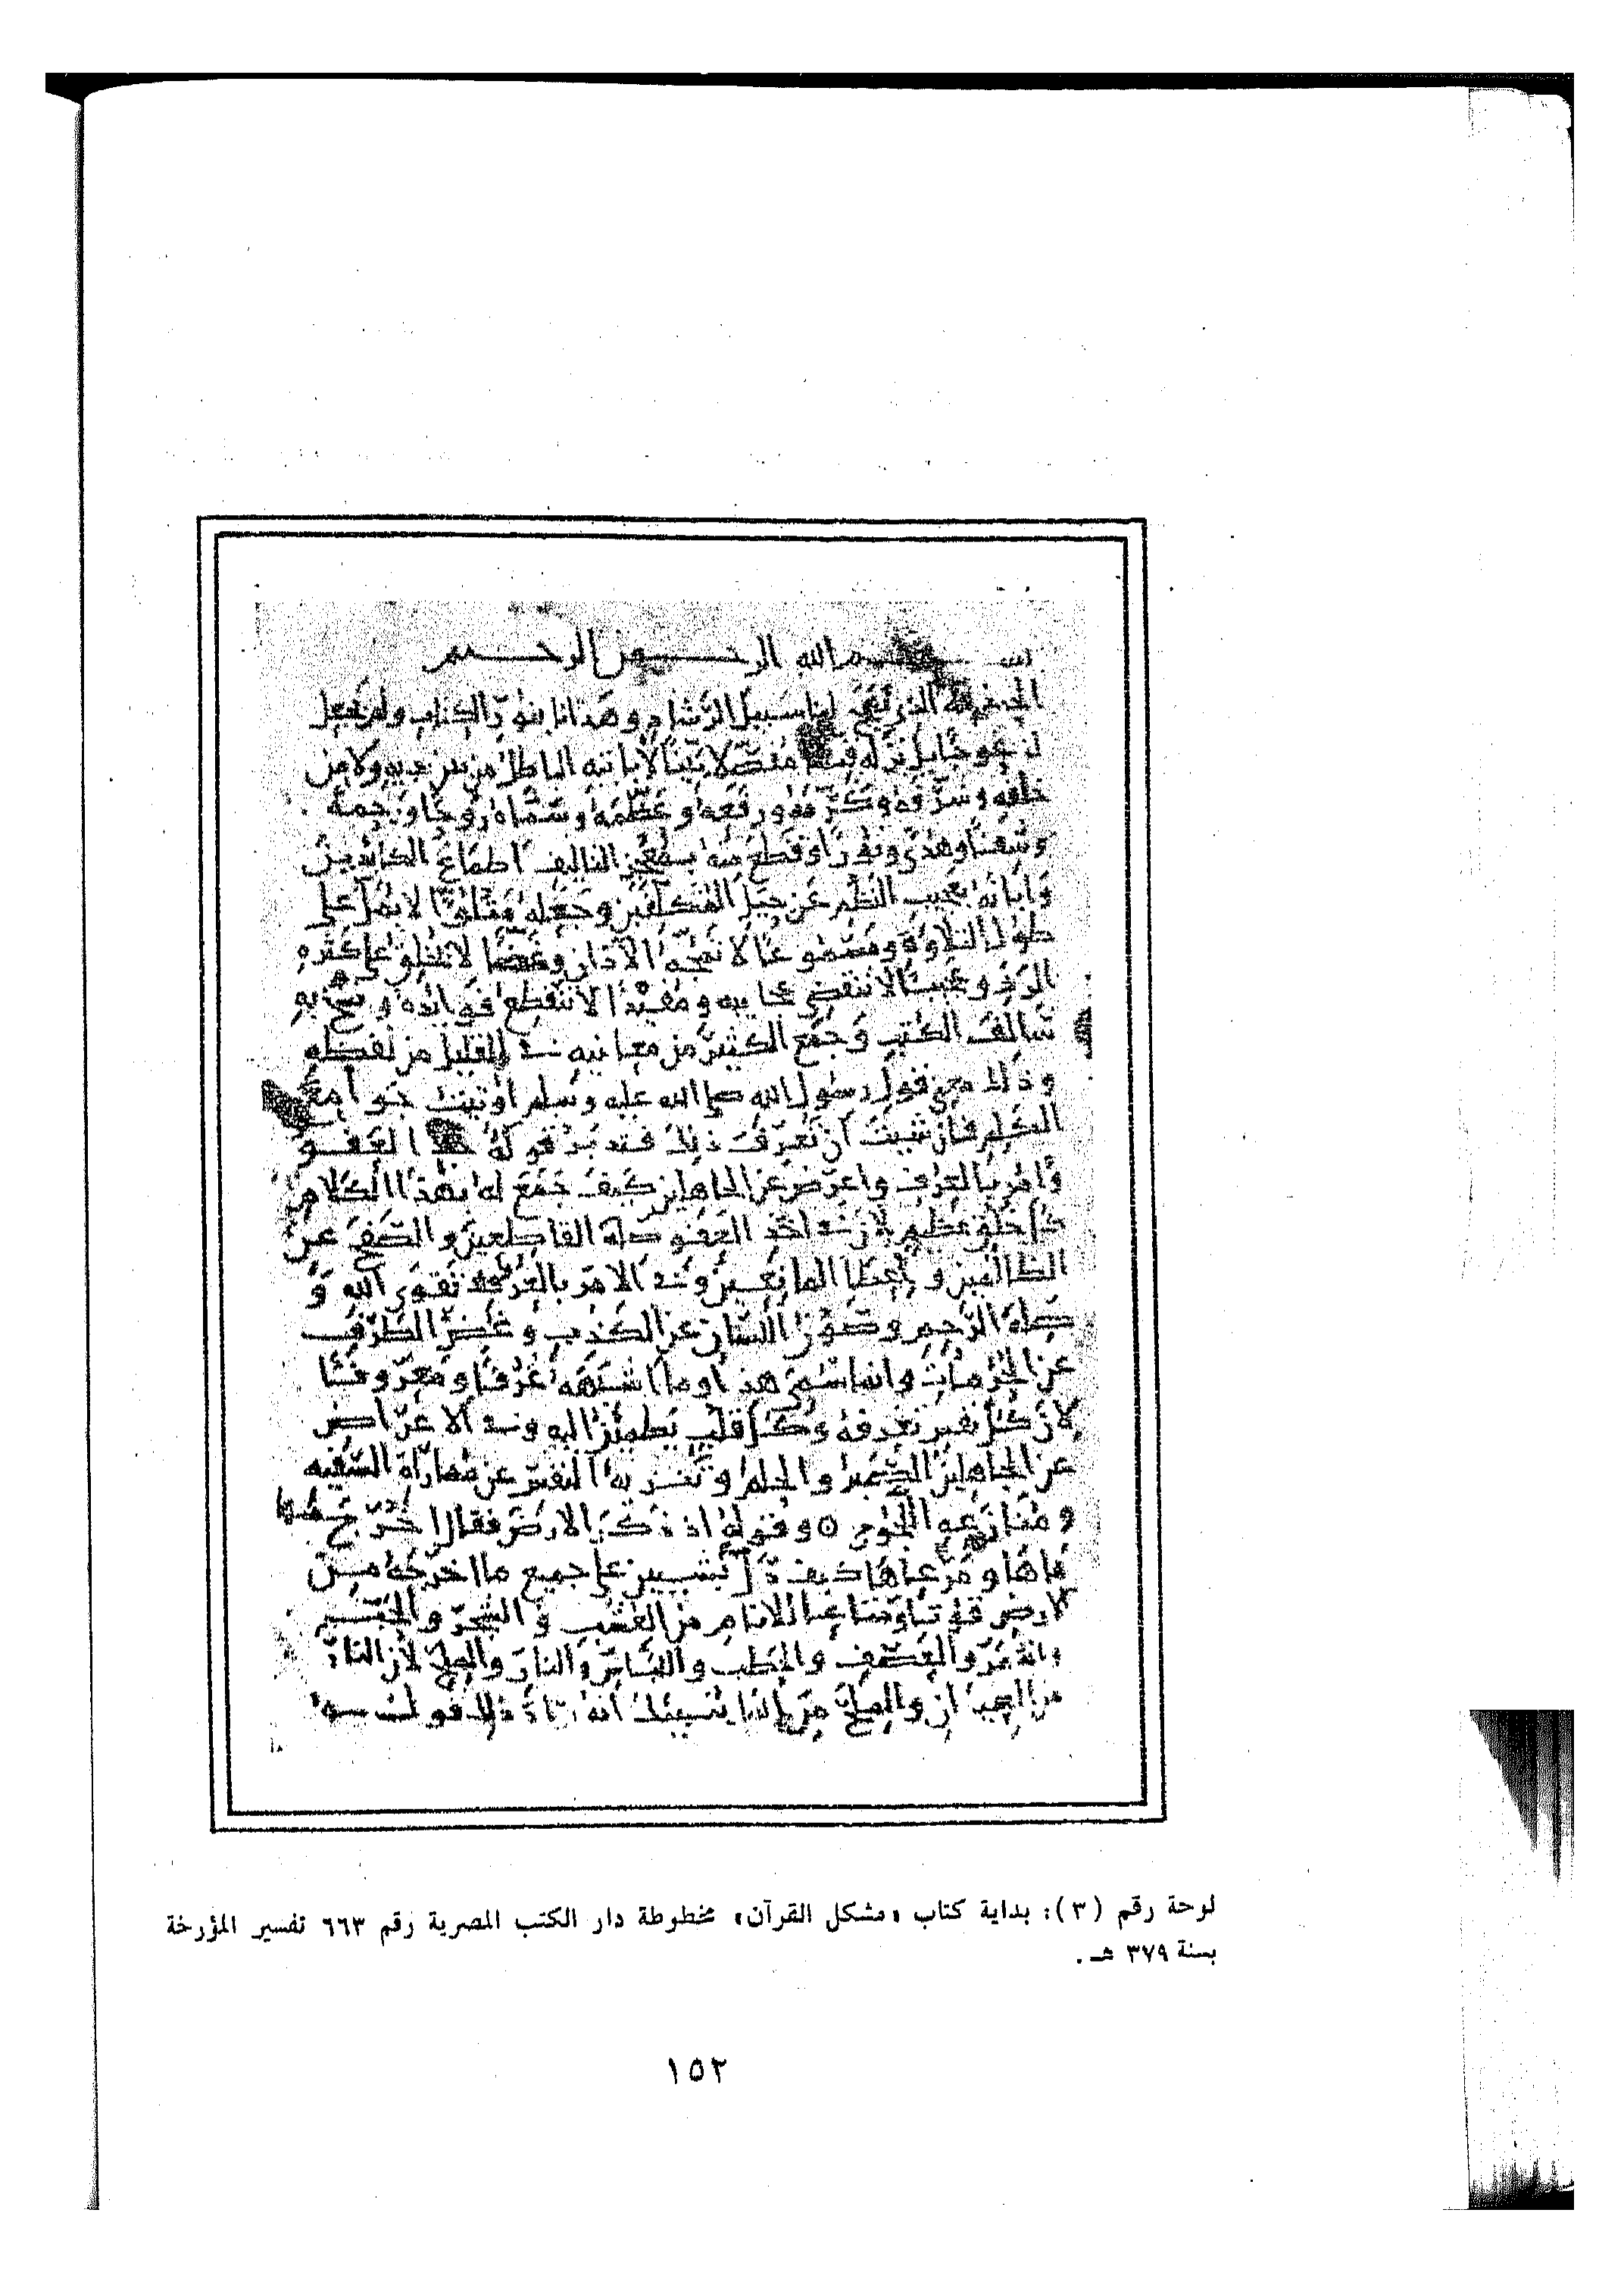 بسم الله الرحمن الرحيم
الحمد لله الذي نهج لنا سبيل الرشاد وهدانا بنور الكتاب ولم يجعل
له عوجا بل نزله قيما مفصلا بينا لا ياتيه الباطل من بين يديه ولا من
خلفه وشرفه وكرمه ورفعه وعظمه وسماه روحا ورحمة
وشفا وهدى ونورا وقطع منه بمعجز التاليف اطماع الكائدين
وابانه بعجيب النظم عن حيل المتكلفين وجعله متلوا لا يمل على
طول التلاوة ومسموعا لا تمجه الآذان وغضا لا يخلق على كثرة
الرد وعجيبا لا تنقضي عجايبه ومفيدا لا تنقطع فوايده ونسخ به
سالف الكتب وجمع الكثير من معانيه في القليل من لفظه
وذلك معنى قول رسول الله صلى الله عليه وسلم اوتيت جوامع
الكلم فان شيت ان تعرف ذلك فتدبر قوله خذ العفو
وامر بالعرف واعرض عن الجاهلين كيف جمع له بهذا الكلام
كل خلق عظيم لان في اخذ العفو صلة القاطعين والصفح عن
الظالمين واعطا المانعين وفي الامر بالعرف تقوى الله و
صلة الرحم وصون اللسان عن الكذب وغض الطرف
عن الحرمات وانما سمي هذا وما اشبهه عرفا ومعروفا
لان كل نفس تعرفه وكل قلب يطمئن اليه وفي الاعراض
عن الجاهلين الصبر والحلم وتنزيه النفس عن مماراة السفيه
ومنازعة اللجوج ٥ وقوله اذ ذكر الارض فقال اخرج منها
ماها ومرعاها كيف دل بشيين على جميع ما اخرجه من
الارض قوتا ومتاعا للانام من العشب والشجر والحب
والثمر والعصف والحطب واللباس والنار والملح لان النار
من العيدان والملح من الما ينبيك انه اراد ذلك قوله
لوحة رقم (٣): بداية كتاب «مشكل القرآن» مخطوطة دار الكتب المصرية رقم ٦٦٣ تفسير المؤرخة
بسنة ٣٧٩ هـ.
١٥٢